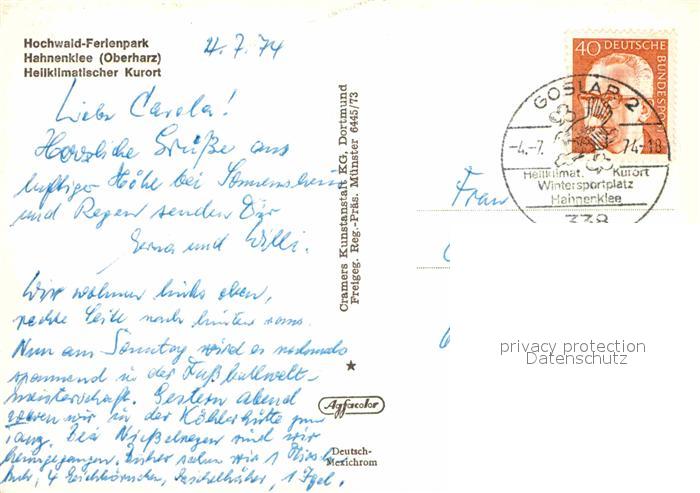 Hochwald-Ferienpark
Hahnenklee (Oberharz)
Heilklimatischer Kurort
4.7.74
Liebe Carola!
Herzliche Grüße aus
luftiger Höhe bei Sonnenschein
und Regen senden Dir
Erna und Willi.
Wir wohnen links oben,
rechte Seite nach hinten raus.
Nun am Sonntag wird es nochmals
spannend in der Fußballwelt-
meisterschaft. Gestern abend
waren wir in der Köhlerhütte zum
Tanz. Bei Nieselregen sind wir
heimgegangen. Bisher sahen wir 1
4 Eichhörnchen, Eichelhäher, 1 Igel.
Cramers Kunstanstalt KG, Dortmund
Freigeg. Reg.-Präs. Münster 6445/73
Agfacolor
Deutsch-
Mexichrom
40 DEUTSCHE
BUNDESPOST
GOSLAR 2
-4.-7. 74-18
Heilklimat. Kurort
Wintersportplatz
Hahnenklee
338
Frau
privacy protection
Datenschutz